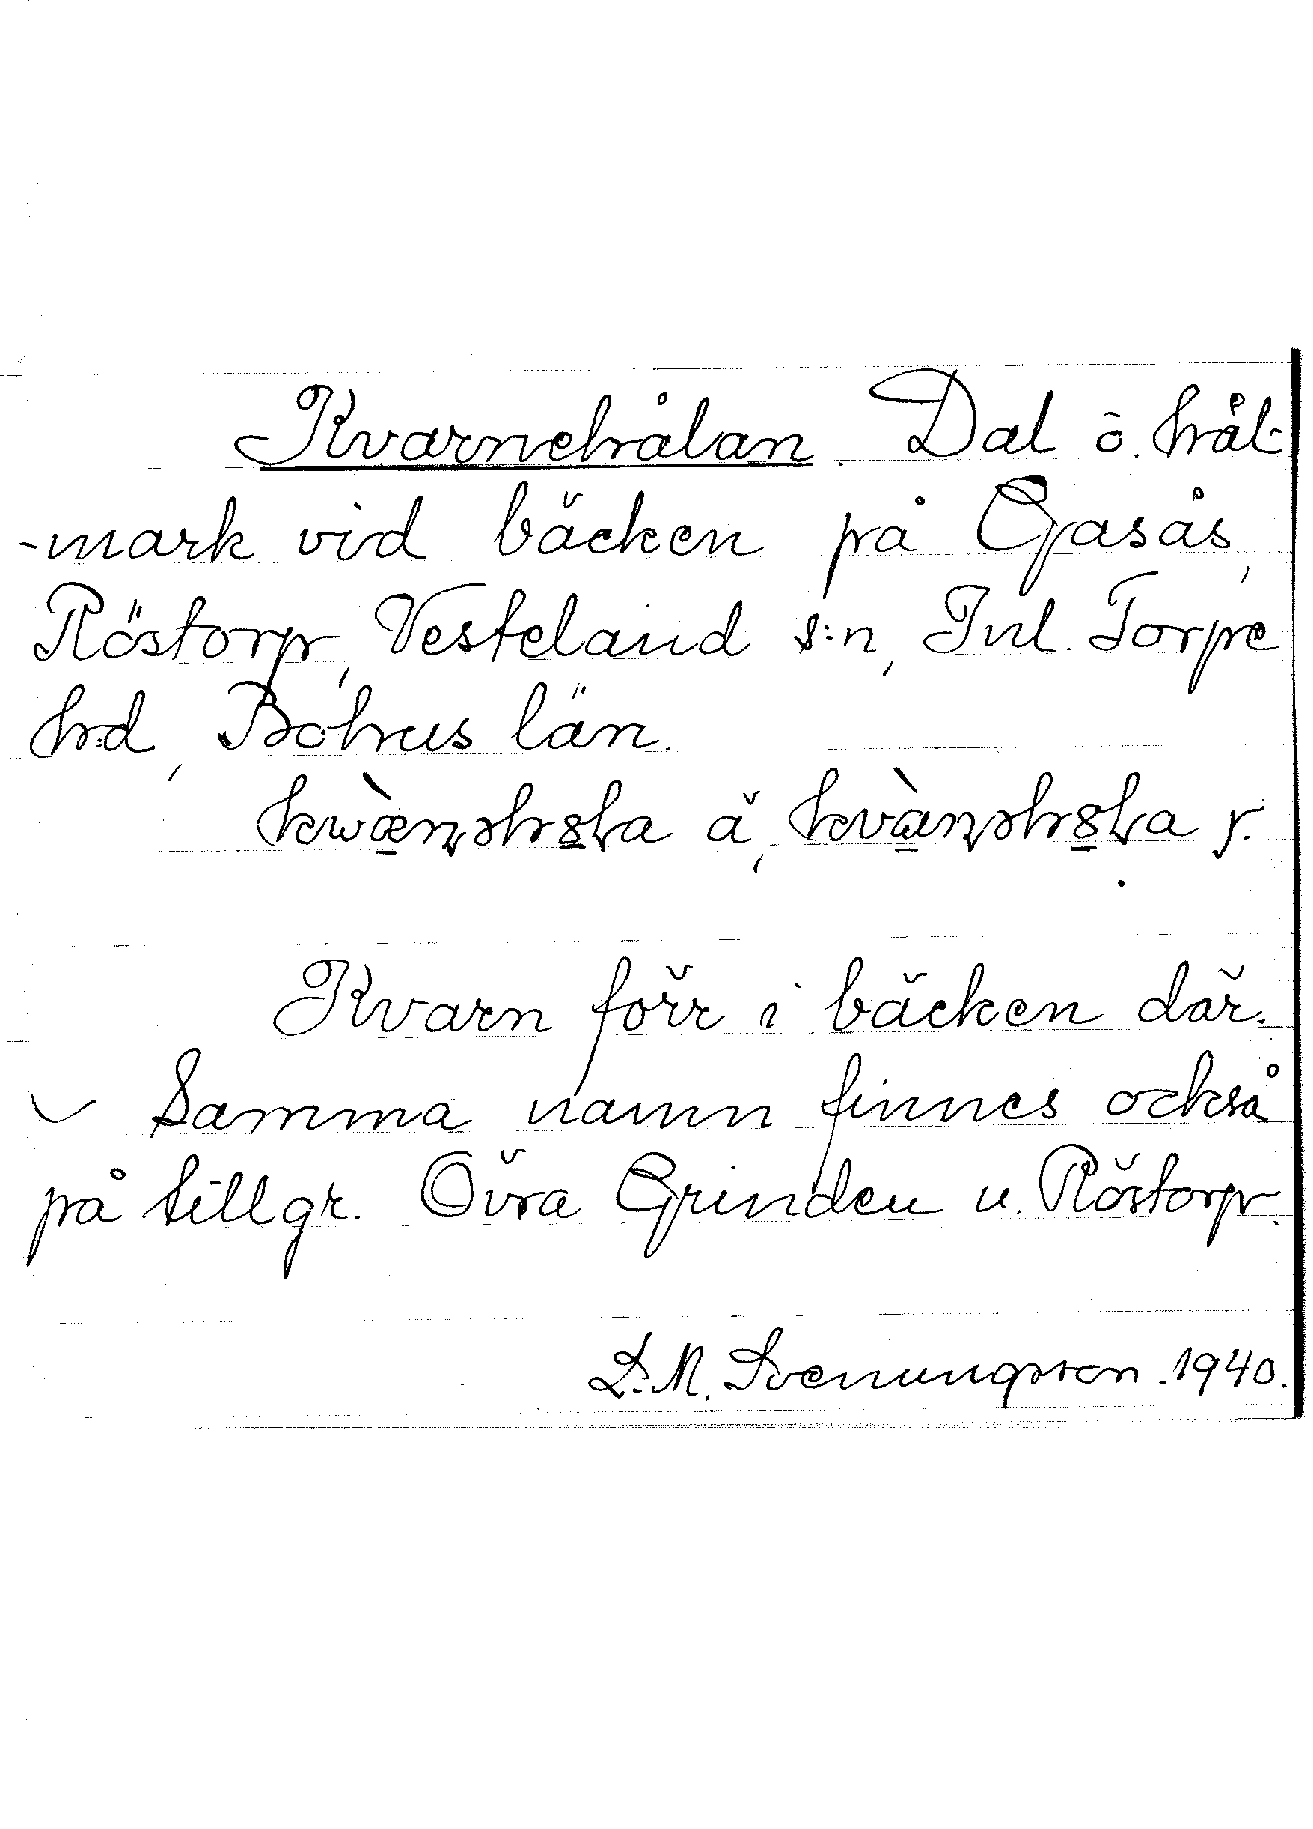 Kvarnehålan Dal o. hål-
-mark vid bäcken på Gasås,
Röstorp, Vesteland s:n, Inl. Torpe
h:d, Bohus län.
å, f.
Kvarn förr i bäcken där.
Samma namn finnes också
på tillgr. Övra Grinden u. Röstorp.
D. M. Svenungsson. 1940.